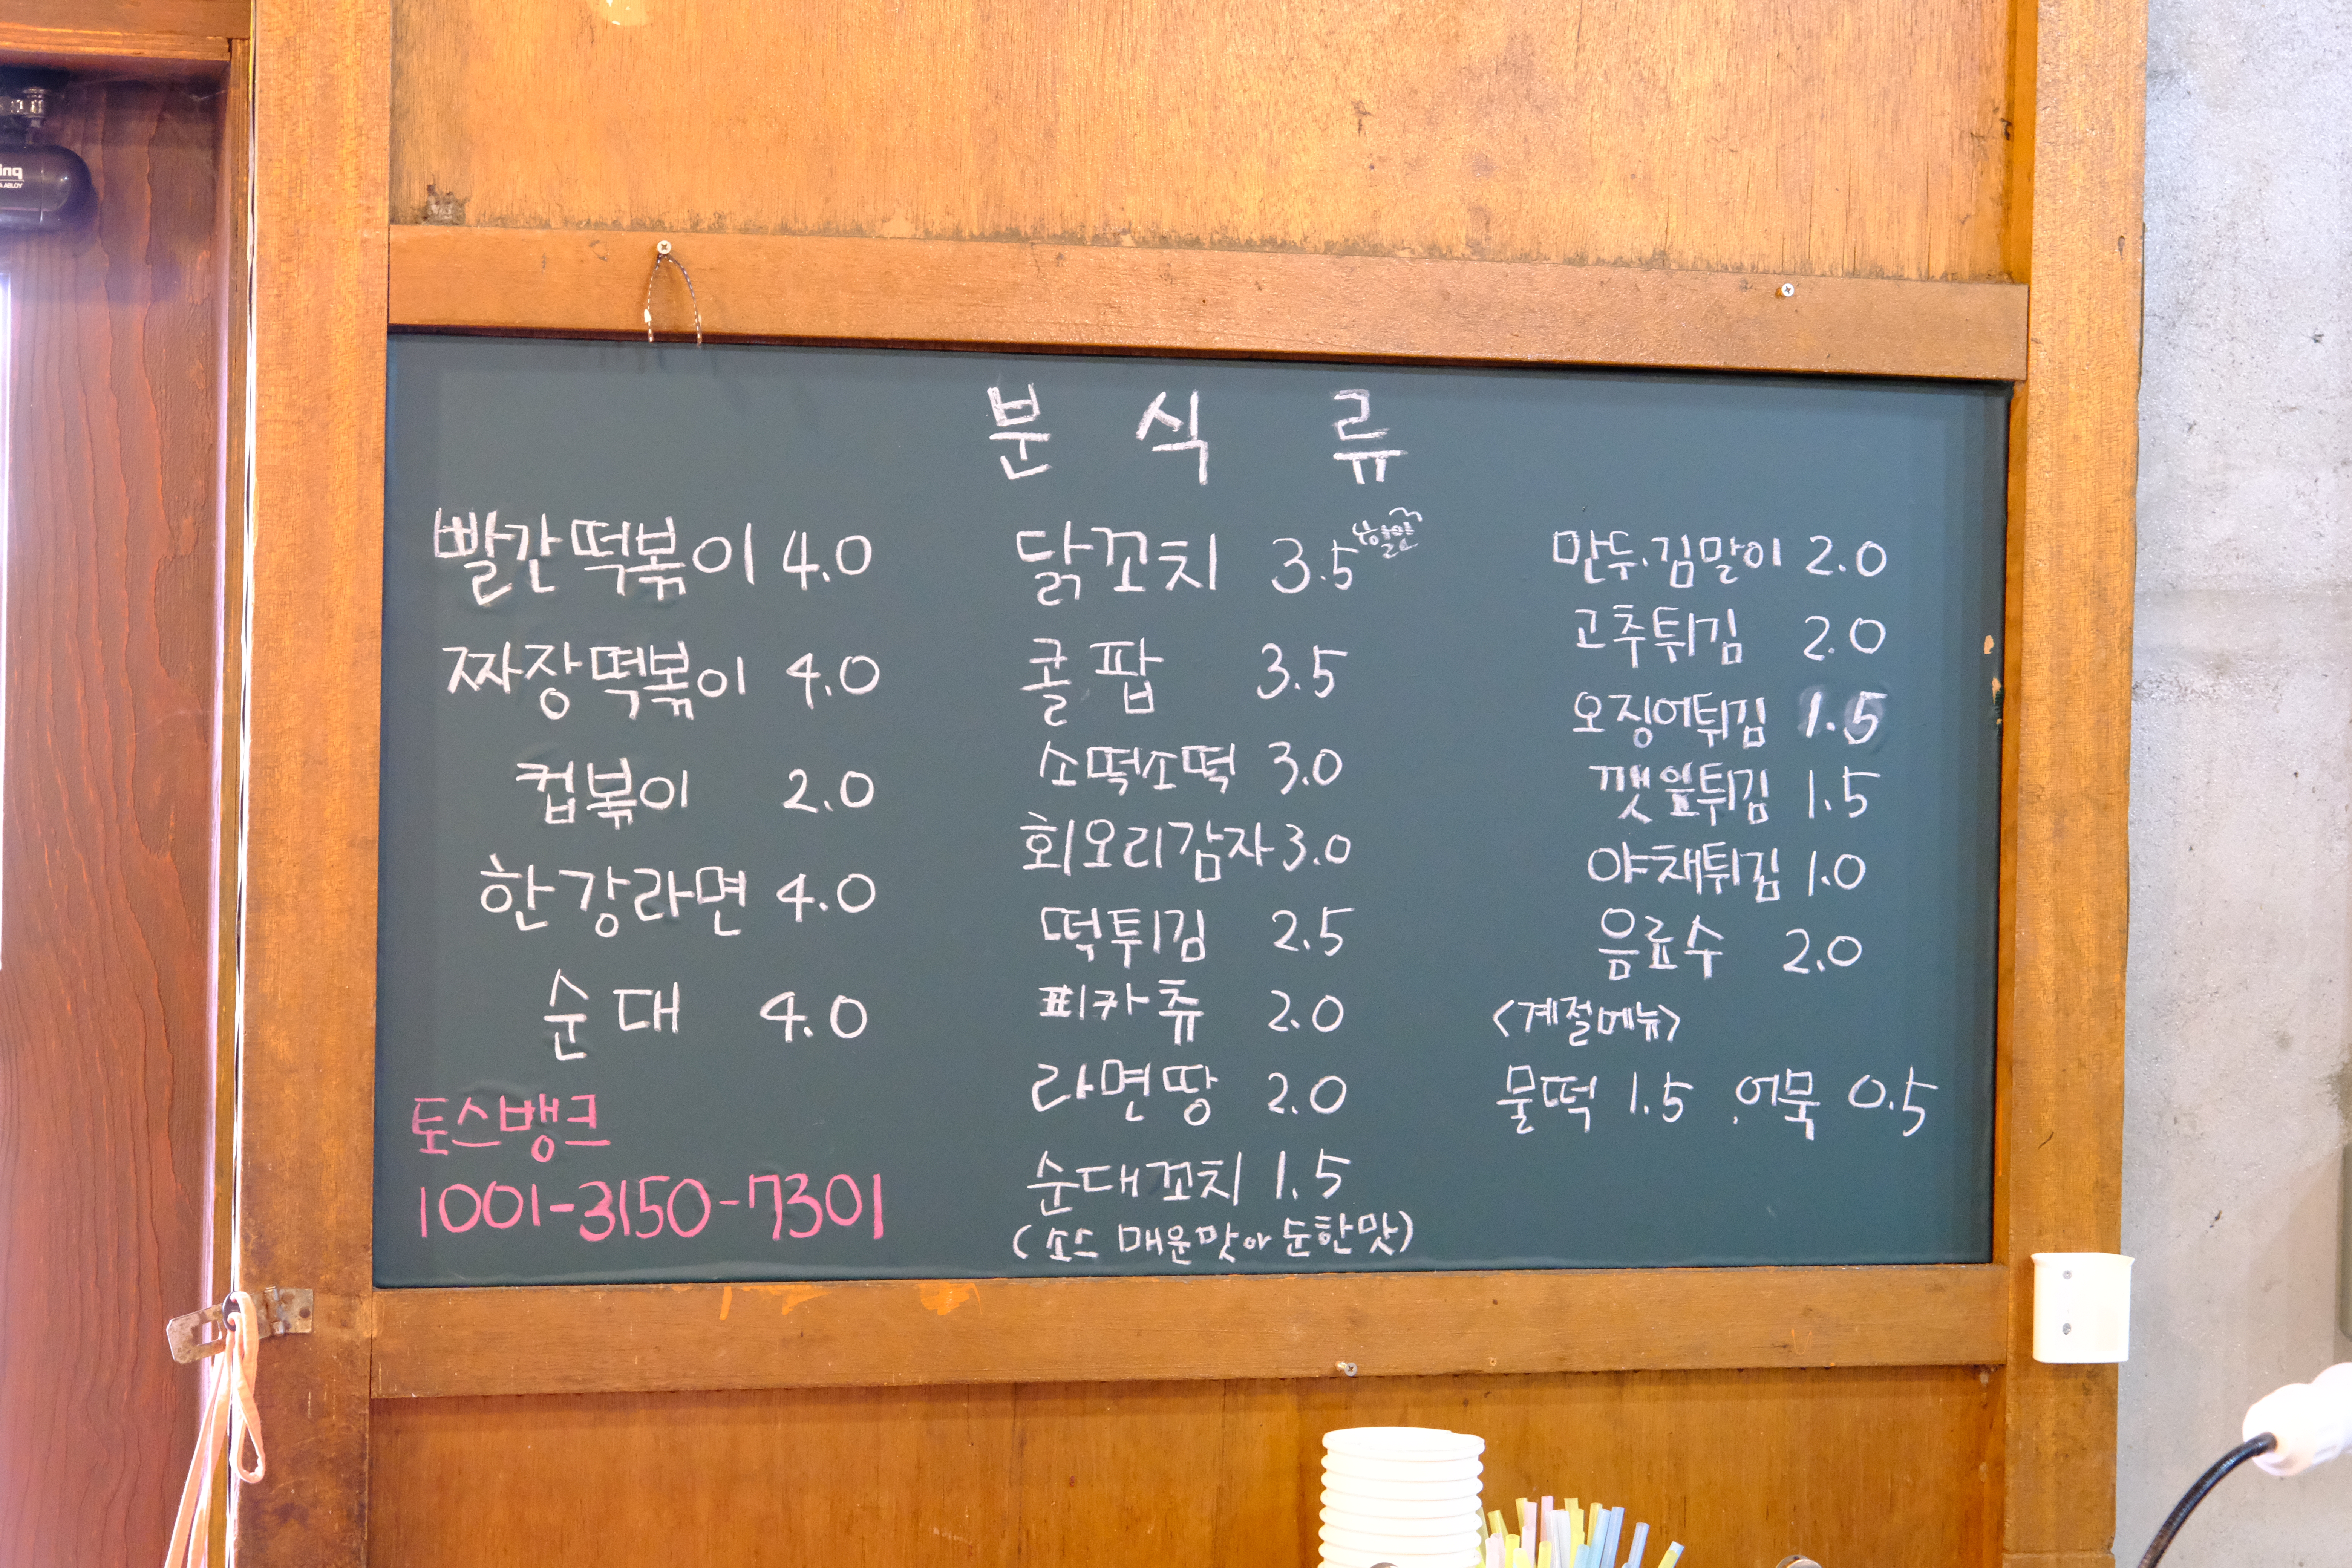 분 식 류
빨간떡볶이 4.0
짜장떡볶이 4.0
컵볶이 2.0
한강라면 4.0
순대 4.0
토스뱅크
1001-3150-7301
닭꼬치 3.5
콜팝 3.5
소떡소떡 3.0
회오리감자 3.0
떡튀김 2.5
피카츄 2.0
라면땅 2.0
순대꼬치 1.5
(소스 매운맛아 순한맛)
만두.김말이 2.0
고추튀김 2.0
오징어튀김 1.5
깻잎튀김 1.5
야채튀김 1.0
음료수 2.0
<계절메뉴>
물떡 1.5 .어묵 0.5